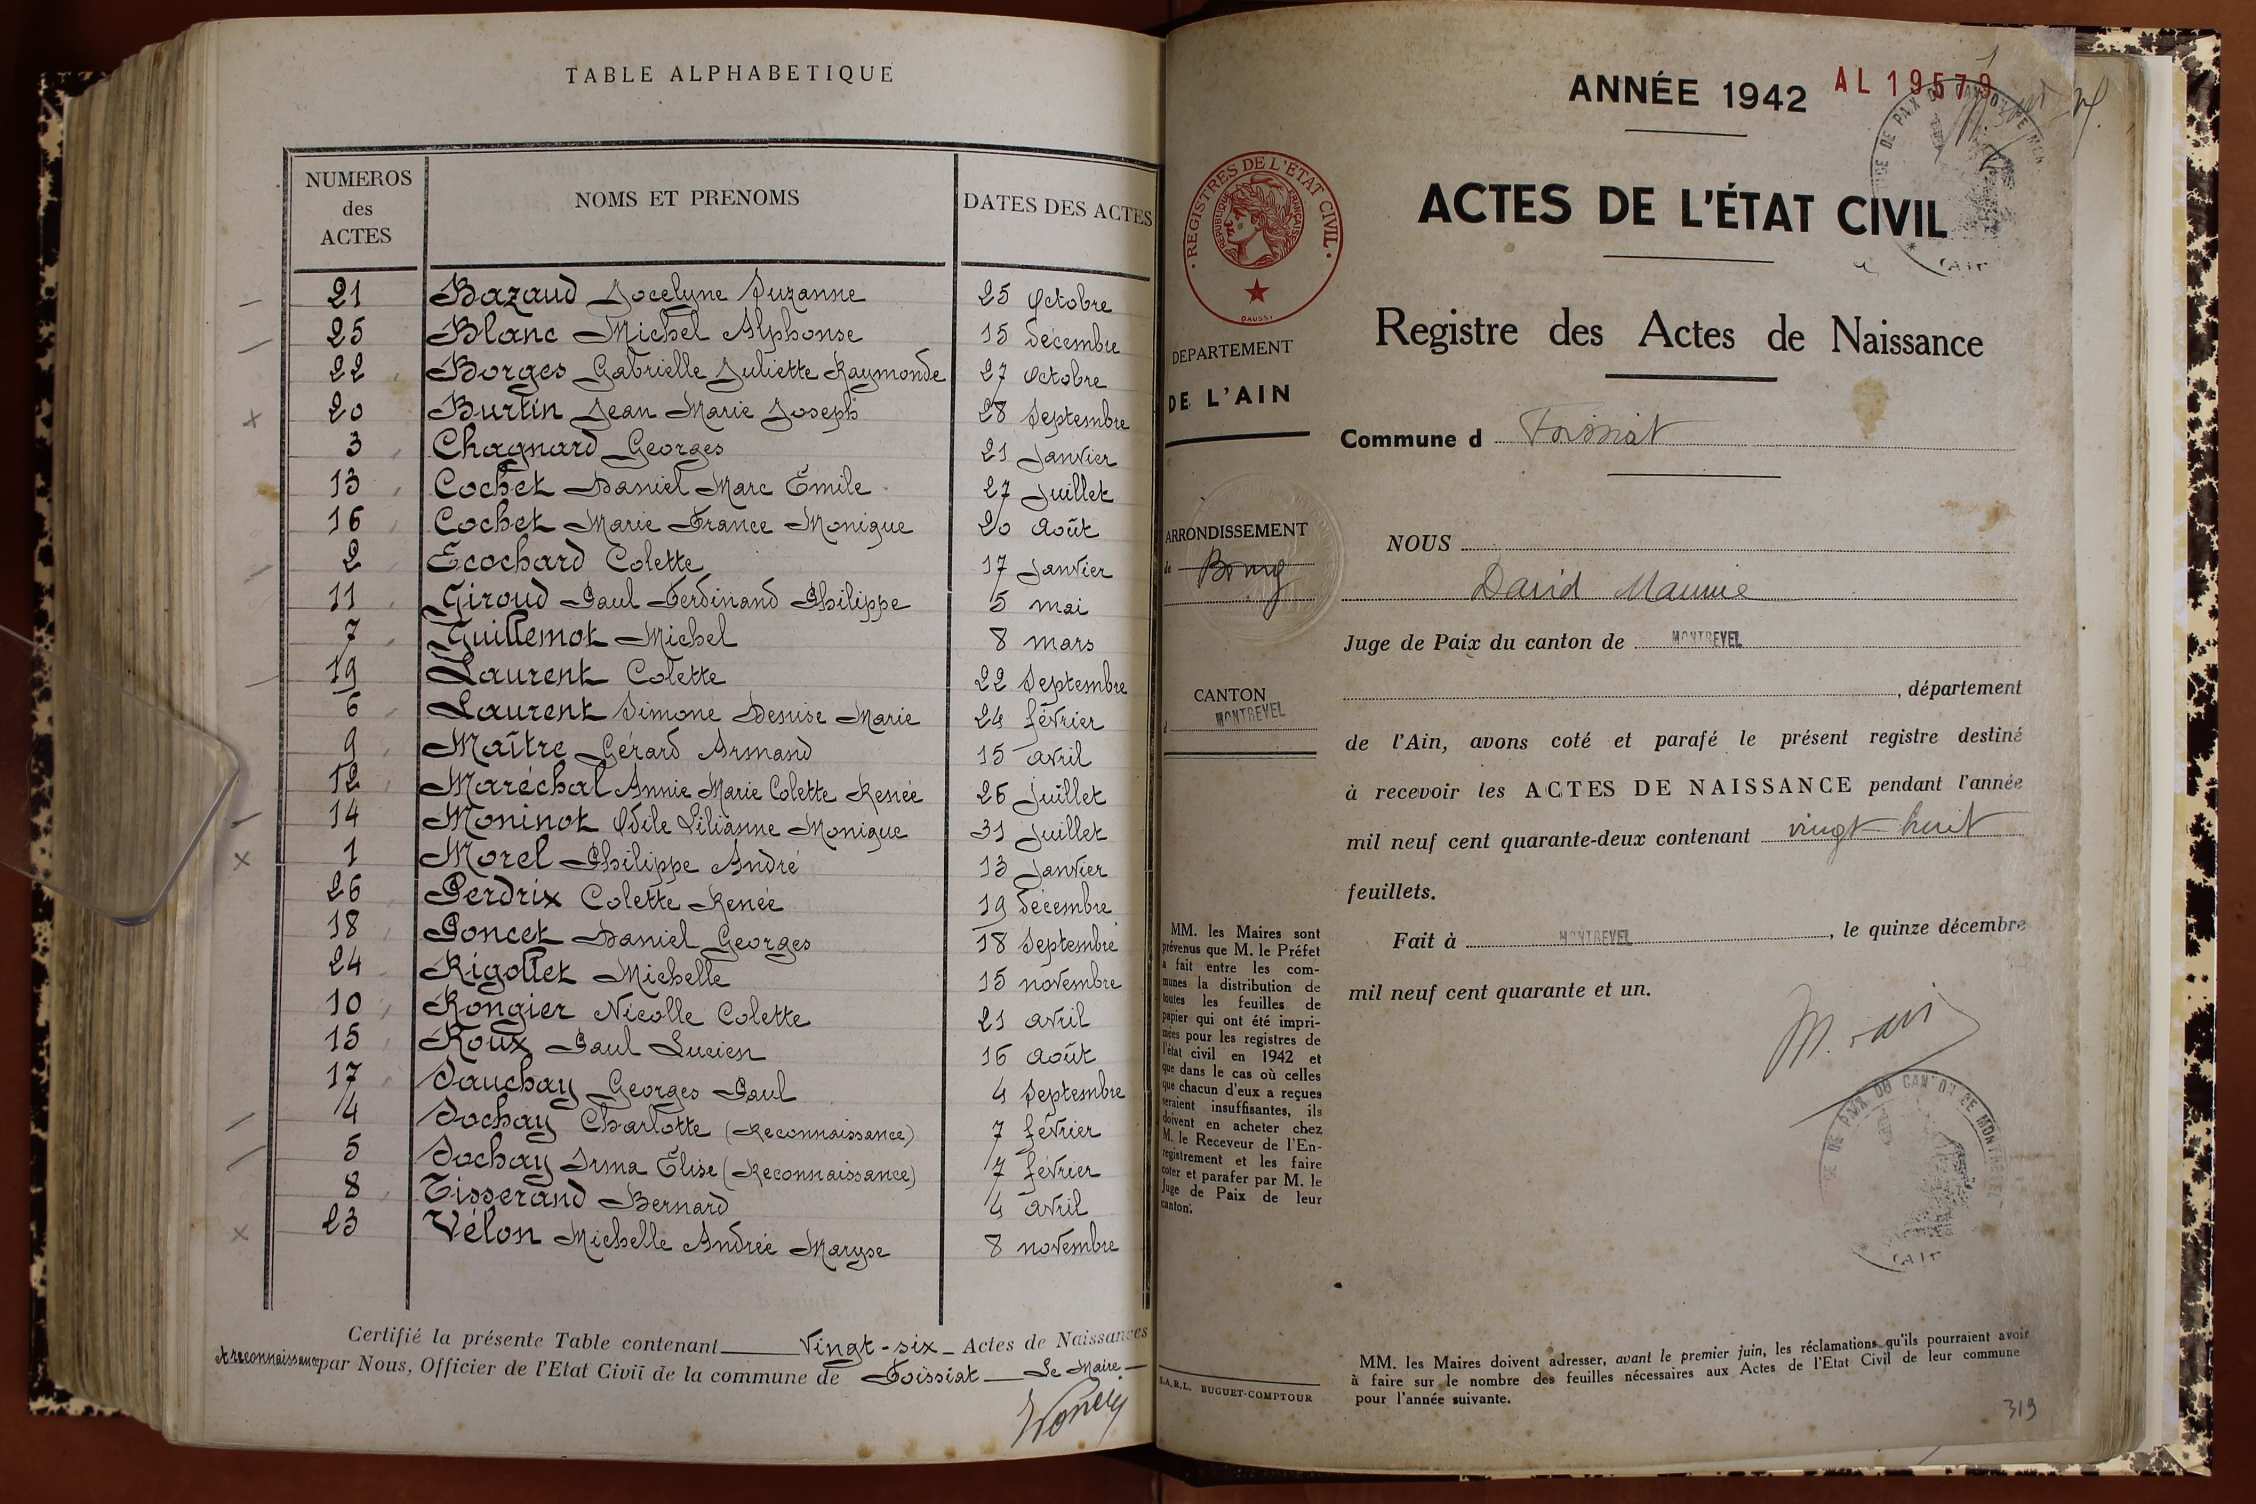 TABLE ALPHABETIQUE
NUMEROS des ACTES NOMS ET PRENOMS DATES DES ACTES
21 Bazaud Jocelyne Suzanne 25 Octobre
25 Blanc Michel Alphonse 15 décembre
22 Borges Gabrielle Juliette Raymonde 27 Octobre
20 Burtin Jean Marie Joseph 28 Septembre
3 Chagnard Georges 21 Janvier
13 Cochet Daniel Marc Emile 27 Juillet
16 Cochet Marie France Monique 20 Août
2 Ecochard Colette 17 Janvier
11 Giroud Paul Ferdinand Philippe 5 mai
7 Guillemot Michel 8 mars
19 Laurent Colette 22 Septembre
6 Laurent Simone Denise Marie 24 février
9 Maître Gérard Armand 15 avril
12 Maréchal Annie Marie Colette Renée 26 Juillet
14 Moninot Odile Lilianne Monique 31 Juillet
1 Morel Philippe André 13 Janvier
26 Perdrix Colette Renée 19 décembre
18 Poncet Daniel Georges 18 Septembre
24 Rigollet Michelle 15 novembre
10 Rongier Nicolle Colette 21 avril
15 Roux Paul Lucien 16 août
17 Sauchay Georges Paul 4 Septembre
4 Sochay Charlotte (Reconnaissance) 7 février
5 Sochay Irma Elise (Reconnaissance) 7 février
8 Tisserand Bernard 4 avril
23 Vélon Michelle Andrée Maryse 8 novembre
Certifié la présente Table contenant Vingt-six Actes de Naissances
et reconnaissance par Nous, Officier de l'Etat Civil de la commune de Foissiat Le Maire
ANNÉE 1942 AL 19579
ACTES DE L'ÉTAT CIVIL
REGISTRES DE L'ÉTAT CIVIL
RÉPUBLIQUE FRANÇAISE
Registre des Actes de Naissance
DEPARTEMENT
DE L'AIN
Commune d Foissiat
ARRONDISSEMENT
de Bourg
CANTON
d MONTREVEL
NOUS
David Maurice
Juge de Paix du canton de MONTREVEL
, département
de l'Ain, avons coté et parafé le présent registre destiné
à recevoir les ACTES DE NAISSANCE pendant l'année
mil neuf cent quarante-deux contenant vingt huit
feuillets.
Fait à MONTREVEL, le quinze décembre
mil neuf cent quarante et un.
MM. les Maires sont
prévenus que M. le Préfet
a fait entre les com-
munes la distribution de
toutes les feuilles de
papier qui ont été impri-
mées pour les registres de
l'état civil en 1942 et
que dans le cas où celles
que chacun d'eux a reçues
seraient insuffisantes, ils
doivent en acheter chez
M. le Receveur de l'En-
registrement et les faire
coter et parafer par M. le
Juge de Paix de leur
canton.
DE PAIX DU CANTON DE MONTREVEL
(AIN)
S.A.R.L. BUGUET-COMPTOUR
MM. les Maires doivent adresser, avant le premier juin, les réclamations qu'ils pourraient avoir
à faire sur le nombre des feuilles nécessaires aux Actes de l'Etat Civil de leur commune
pour l'année suivante.
319